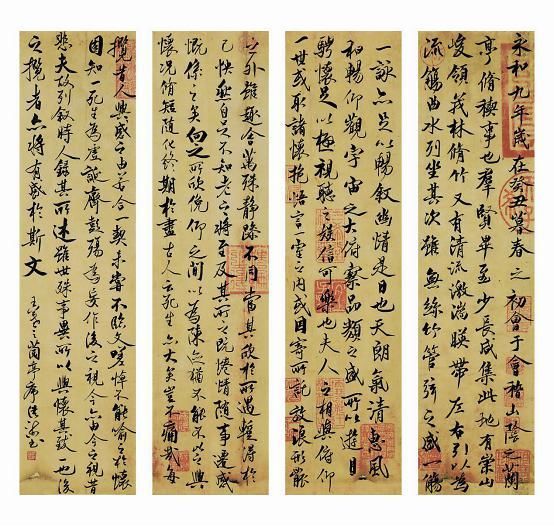 永和九年歲在癸丑暮春之初會于會稽山陰之蘭
亭脩稧事也羣賢畢至少長咸集此地有崇山
峻領茂林脩竹又有清流激湍暎帶左右引以為
流觴曲水列坐其次雖無絲竹管弦之盛一觴
一詠亦足以暢敘幽情是日也天朗氣清惠風
和暢仰觀宇宙之大俯察品類之盛所以遊目
騁懷足以極視聽之娛信可樂也夫人之相與俯仰
一世或取諸懷抱悟言一室之內或因寄所託放浪形骸
之外雖趣舍萬殊靜躁不同當其欣於所遇蹔得於
己怏然自足不知老之將至及其所之既惓情隨事遷感
慨係之矣向之所欣俛仰之間以為陳迹猶不能不以之興
懷況脩短隨化終期於盡古人云死生亦大矣豈不痛哉每
攬昔人興感之由若合一契未嘗不臨文嗟悼不能喻之於懷
固知一死生為虛誕齊彭殤為妄作後之視今亦由今之視昔
悲夫故列敘時人錄其所述雖世殊事異所以興懷其致一也後
之攬者亦將有感於斯文
王羲之蘭亭序